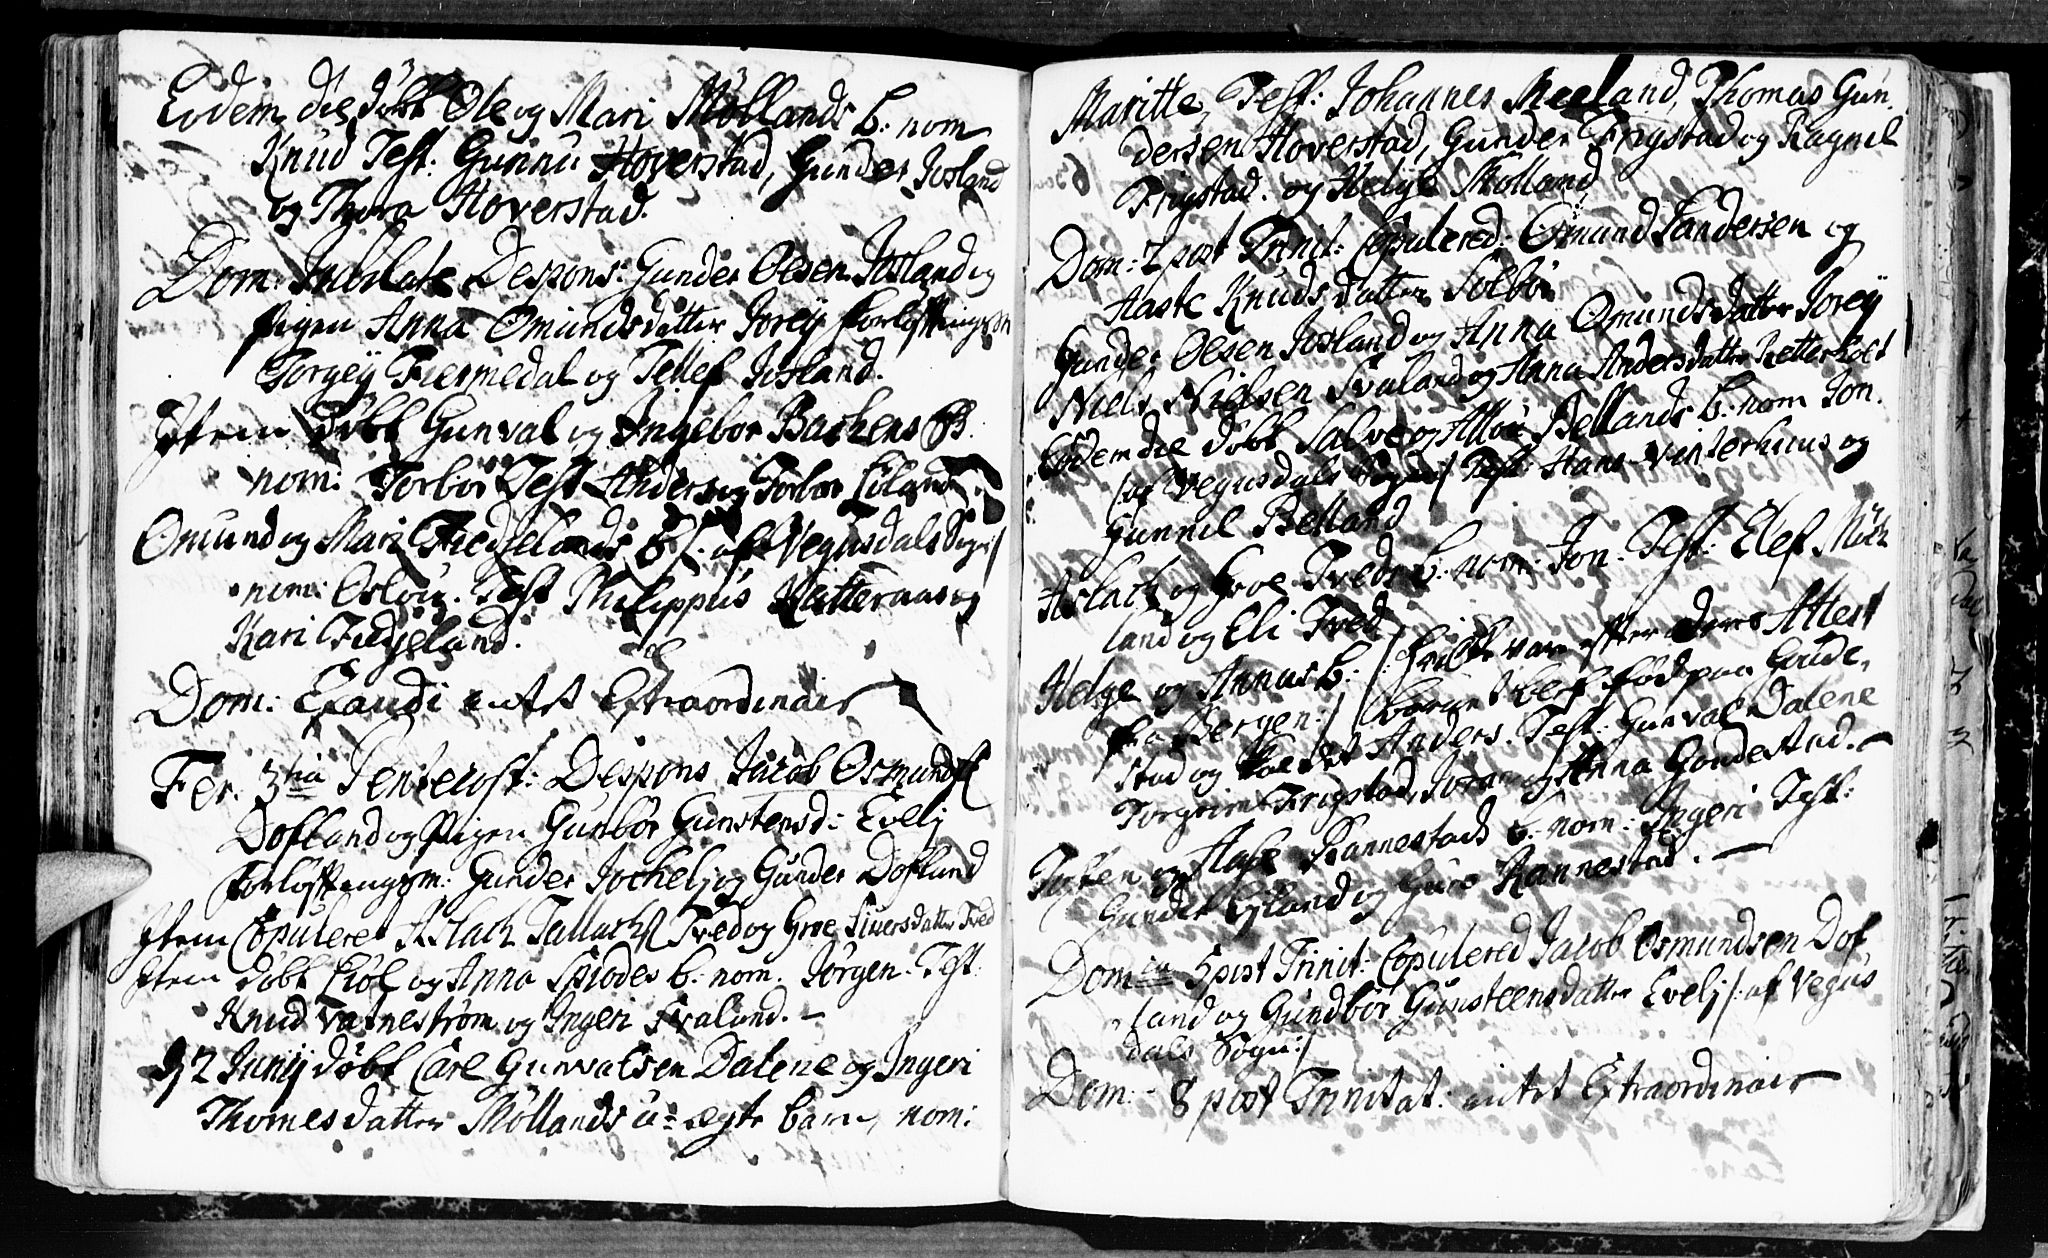 Eodem die döbt Ole og Mari Möllands b: nom
Knud Test: Gunnu Hoverstad, Gunder Josland
og Thora Hoverstad.
Dom: Jubilate Despons: Gunder Olsen Josland og
Pigen Anna Omundsdatter Joreÿ forloftningsm
Torgeÿ Fiermedal og Tellef Josland.
Item döbt Gunval og Ingebor Backens B.
nom: Torbor Test Anders og Torbor Eiland
Omund og Mari Tiedselands b /: af Vegusdals Sogn :/
nom: Oslou. Test Philippus Hatteraas og
Kari Tiedseland.
Dom: Exaudi intet Extraordinair
Fer. 3tia Pentecost: Despons Jacob Osmunds
Dofland og Pigen Gunbor Gunstensd: Evelj
forloftningsm: Gunder Jockelj og Gunder Dofland
Item Copuleret Aslach Tallachs Tved og Groe Siversdatter Tved
Item döbt Kiöl og Anna Spiodes b: nom. Jörgen. Test:
Knud Vatneström og Ingeri Svaland.
D 2 Junij döbt Carl Gunvalsen Dalene og Ingeri
Thomesdatter Möllands u-ægte barn, nom:
Maritte, Test: Johannes Meeland, Thomas Gun-
dersen Hoverstad, Gunder Frigstad og Ragnil
Frigstad. og Helge Molland
Dom: 2 post Trinit: Copulered: Omund Sandersen og
Aaste Knudsdatter Solbör
Gunder Olsen Josland og Anna Omundsdatter Joreÿ
Niels Nielsen Svaland og Anna Andersdatter Retterholt
Eodem die döbt Salve og Allou Bellands b: nom Jon.
/af Vegusdals Sogn/ Test: Hans Vinterhuus og
Gunnil Belland
Aslach og Groe Tveds b: nom: Jon. Test: Elef Möck
land og Eli Tved
Helge og Annas b: /: hvilke vare efter deres Attest
fra Bergen :/ barnet blef föd paa Gaude-
stad og kaldet Anders. Test: Gunval Dalene
Torgrim Frigstad, Joran og Anna Goudestad.
Tosten og Aase Rannestads b: nom: Ingeri Test:
Gunder Eyland og Guro Rannestad.
Dom=ca 5 post Trinit: Copulered Jacob Osmundsen Dof
land og Gundbör Gunsteensdatter Evelj /: af Vegus
dals Sogn:/
Dom: 8 post Trinitat: intet Extraordinair